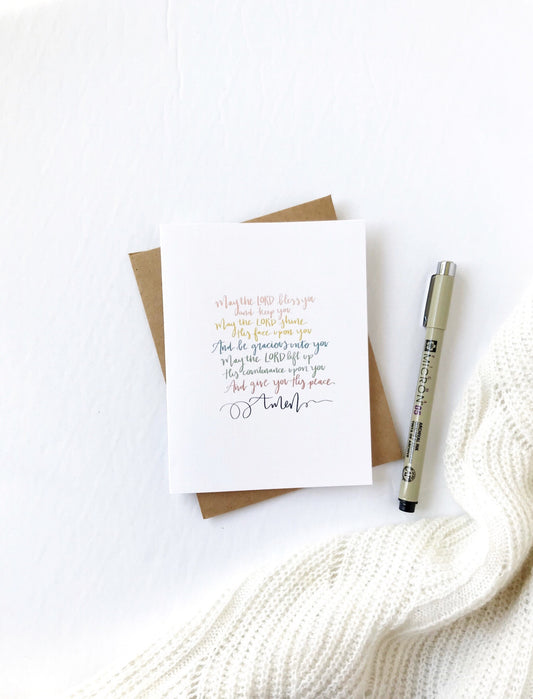 May the LORD bless you
and keep you
May the LORD shine
His face upon you
And be gracious unto you
May the LORD lift up
His countenance upon you
And give you His peace.
Amen
MICRON 05
ARCHIVAL INK